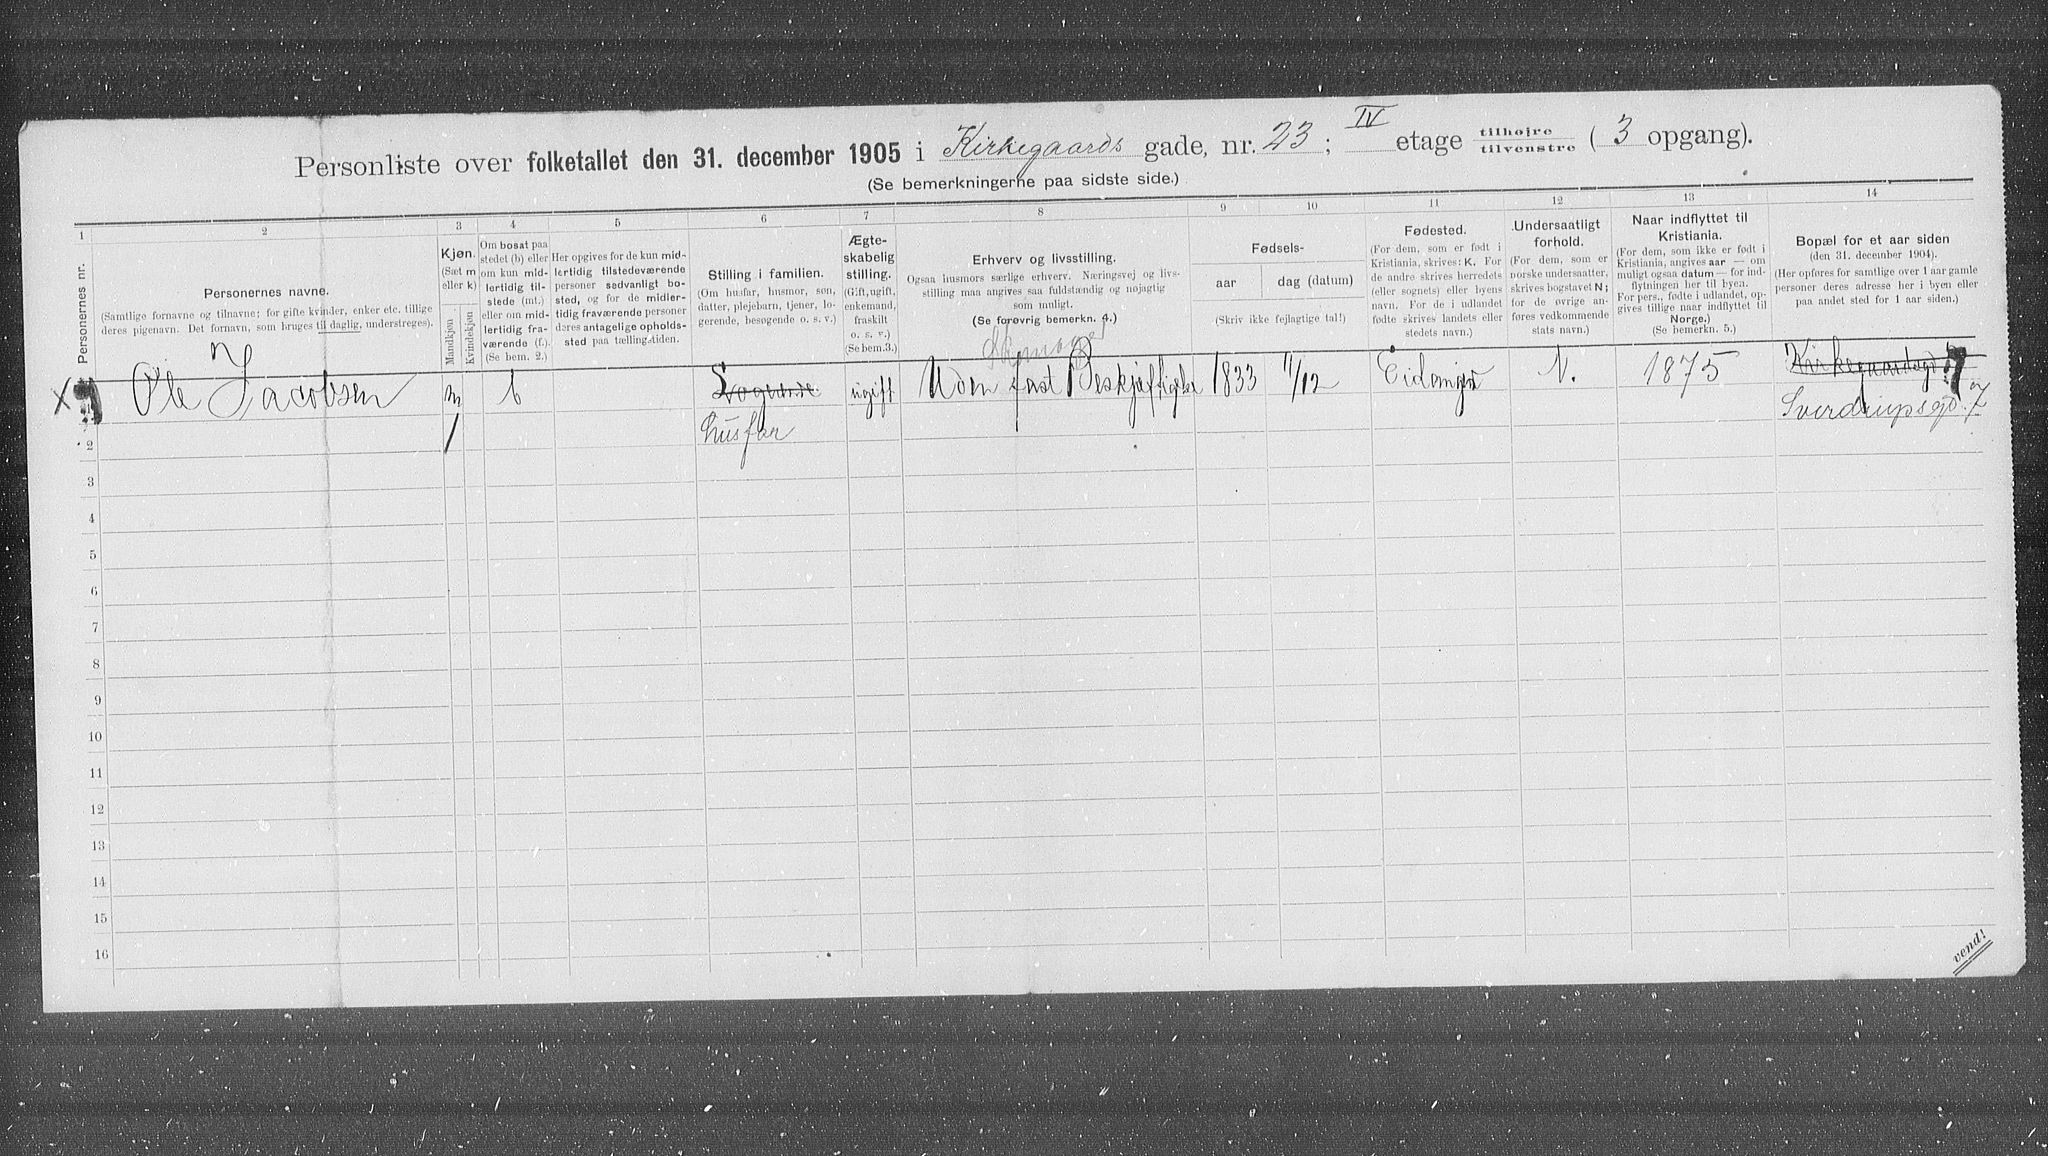 Personliste over folketallet den 31. december 1905 i Kirkegaards gade, nr. 23; IV etage tilhøjre tilvenstre (3 opgang).
(Se bemerkningerne paa sidste side.)
1 2 3 4 5 6 7 8 9 10 11 12 13 14
Personernes nr.
Personernes navne.
(Samtlige fornavne og tilnavne; for gifte kvinder, enker etc. tillige
deres pigenavn. Det fornavn, som bruges til daglig, understreges).
Kjøn.
(Sæt m
eller k)
Mandkjøn
Kvindekjøn
Om bosat paa
stedet (b) eller
om kun mid-
lertidig til-
stede (mt.)
eller om mid-
lertidig fra-
værende (f.).
(Se bem. 2.)
Her opgives for de kun mid-
lertidig tilstedeværende
personer sedvanligt bo-
sted, og for de midler-
tidig fraværende personer
deres antagelige opholds-
sted paa tællingstiden.
Stilling i familien.
(Om husfar, husmor, søn,
datter, plejebarn, tjener, lo-
gerende, besøgende o. s. v.)
Ægte-
skabelig
stilling.
(Gift, ugift,
enkemand,
fraskilt
o. s. v.)
(Se bem. 3.)
Erhverv og livsstilling.
Ogsaa husmors særlige erhverv. Næringsvej og livs-
stilling maa angives saa fuldstændig og nøjagtig
som muligt.
(Se forøvrig bemerkn. 4.)
Fødsels-
aar
dag (datum)
(Skriv ikke fejlagtige tal!)
Fødested.
(For dem, som er født i
Kristiania, skrives: K. For
de andre skrives herredets
(eller sognets) eller byens
navn. For de i udlandet
fødte skrives landets eller
stedets navn.)
Undersaatligt
forhold.
(For dem, som er
norske undersaatter,
skrives bogstavet N;
for de øvrige an-
føres vedkommende
stats navn.)
Naar indflyttet til
Kristiania.
(For dem, som ikke er født i
Kristiania, angives aar — om
muligt ogsaa datum — for ind-
flytningen her til byen.
For pers., fødte i udlandet, op-
gives tillige naar indflyttet til
Norge.)
(Se bemerkn. 5.)
Bopæl for et aar siden
(den 31. december 1904).
(Her opføres for samtlige over 1 aar gamle
personer deres adresse her i byen eller
paa andet sted for 1 aar siden.)
Ole Jacobsen m b Logerende ugift Uden fast Beskjæftigelse 1833 11/12 Eidanger N. 1875 Kirkegaardsgd
husfar Sverdrupsgd. 7
2
3
4
5
6
7
8
9
10
11
12
13
14
15
16
vend!